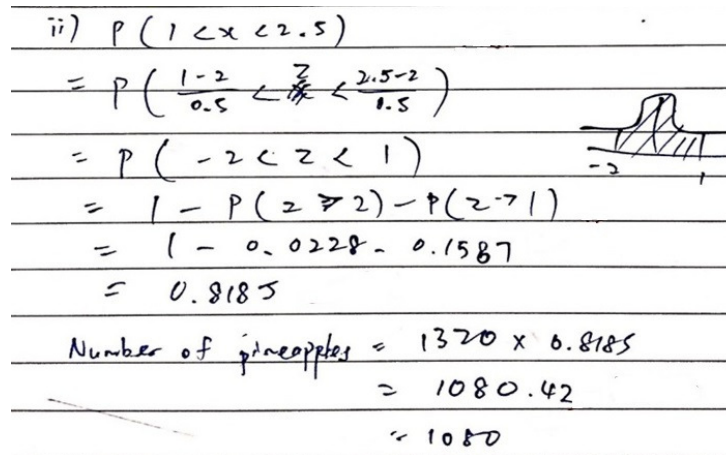 ii) P ( 1 < x < 2.5 )
= P ( \frac{1-2}{0.5} < Z < \frac{2.5-2}{0.5} )
= P ( -2 < Z < 1 )
-2 1
= 1 - P ( Z ≥ 2 ) - P ( Z > 1 )
= 1 - 0.0228 - 0.1587
= 0.8185
Number of pineapples = 1320 x 0.8185
= 1080.42
= 1080